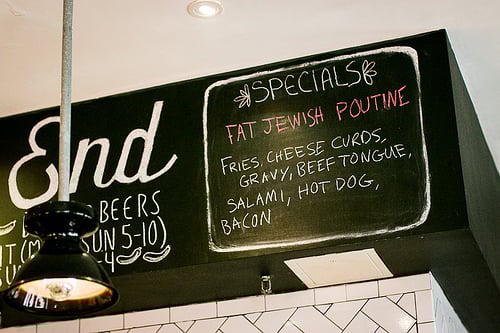 End
BEERS
SUN 5-10)
-4
SPECIALS
FAT JEWISH POUTINE
FRIES, CHEESE CURDS,
GRAVY, BEEF TONGUE,
SALAMI, HOT DOG,
BACON